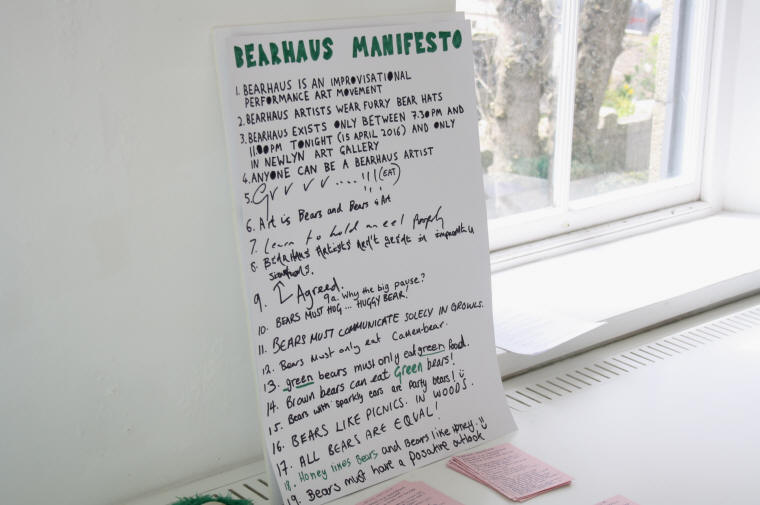 BEARHAUS MANIFESTO
1. BEARHAUS IS AN IMPROVISATIONAL
PERFORMANCE ART MOVEMENT
2. BEARHAUS ARTISTS WEAR FURRY BEAR HATS
3. BEARHAUS EXISTS ONLY BETWEEN 7.30PM AND
11.00PM TONIGHT (15 APRIL 2016) AND ONLY
IN NEWLYN ART GALLERY
4. ANYONE CAN BE A BEARHAUS ARTIST
5. Gr r r r .... !!! (EAT)
6. Art is Bears and Bears is Art
7. Learn to hold an eel firmly
8. BEARHAUS Artists Aren't great in
9. Agreed.
9a. Why the big pause?
10. BEARS MUST HUG ... HUGGY BEAR!
11. BEARS MUST COMMUNICATE SOLELY IN GROWLS.
12. Bears Must only eat Camembear.
13. green bears must only eat green food.
14. Brown bears can eat Green bears!
15. Bears with sparkly ears are party bears!
16. BEARS LIKE PICNICS. IN WOODS.
17. ALL BEARS ARE EQUAL!
18. Honey likes Bears and Bears like Honey.
19. Bears must have a posative outlook